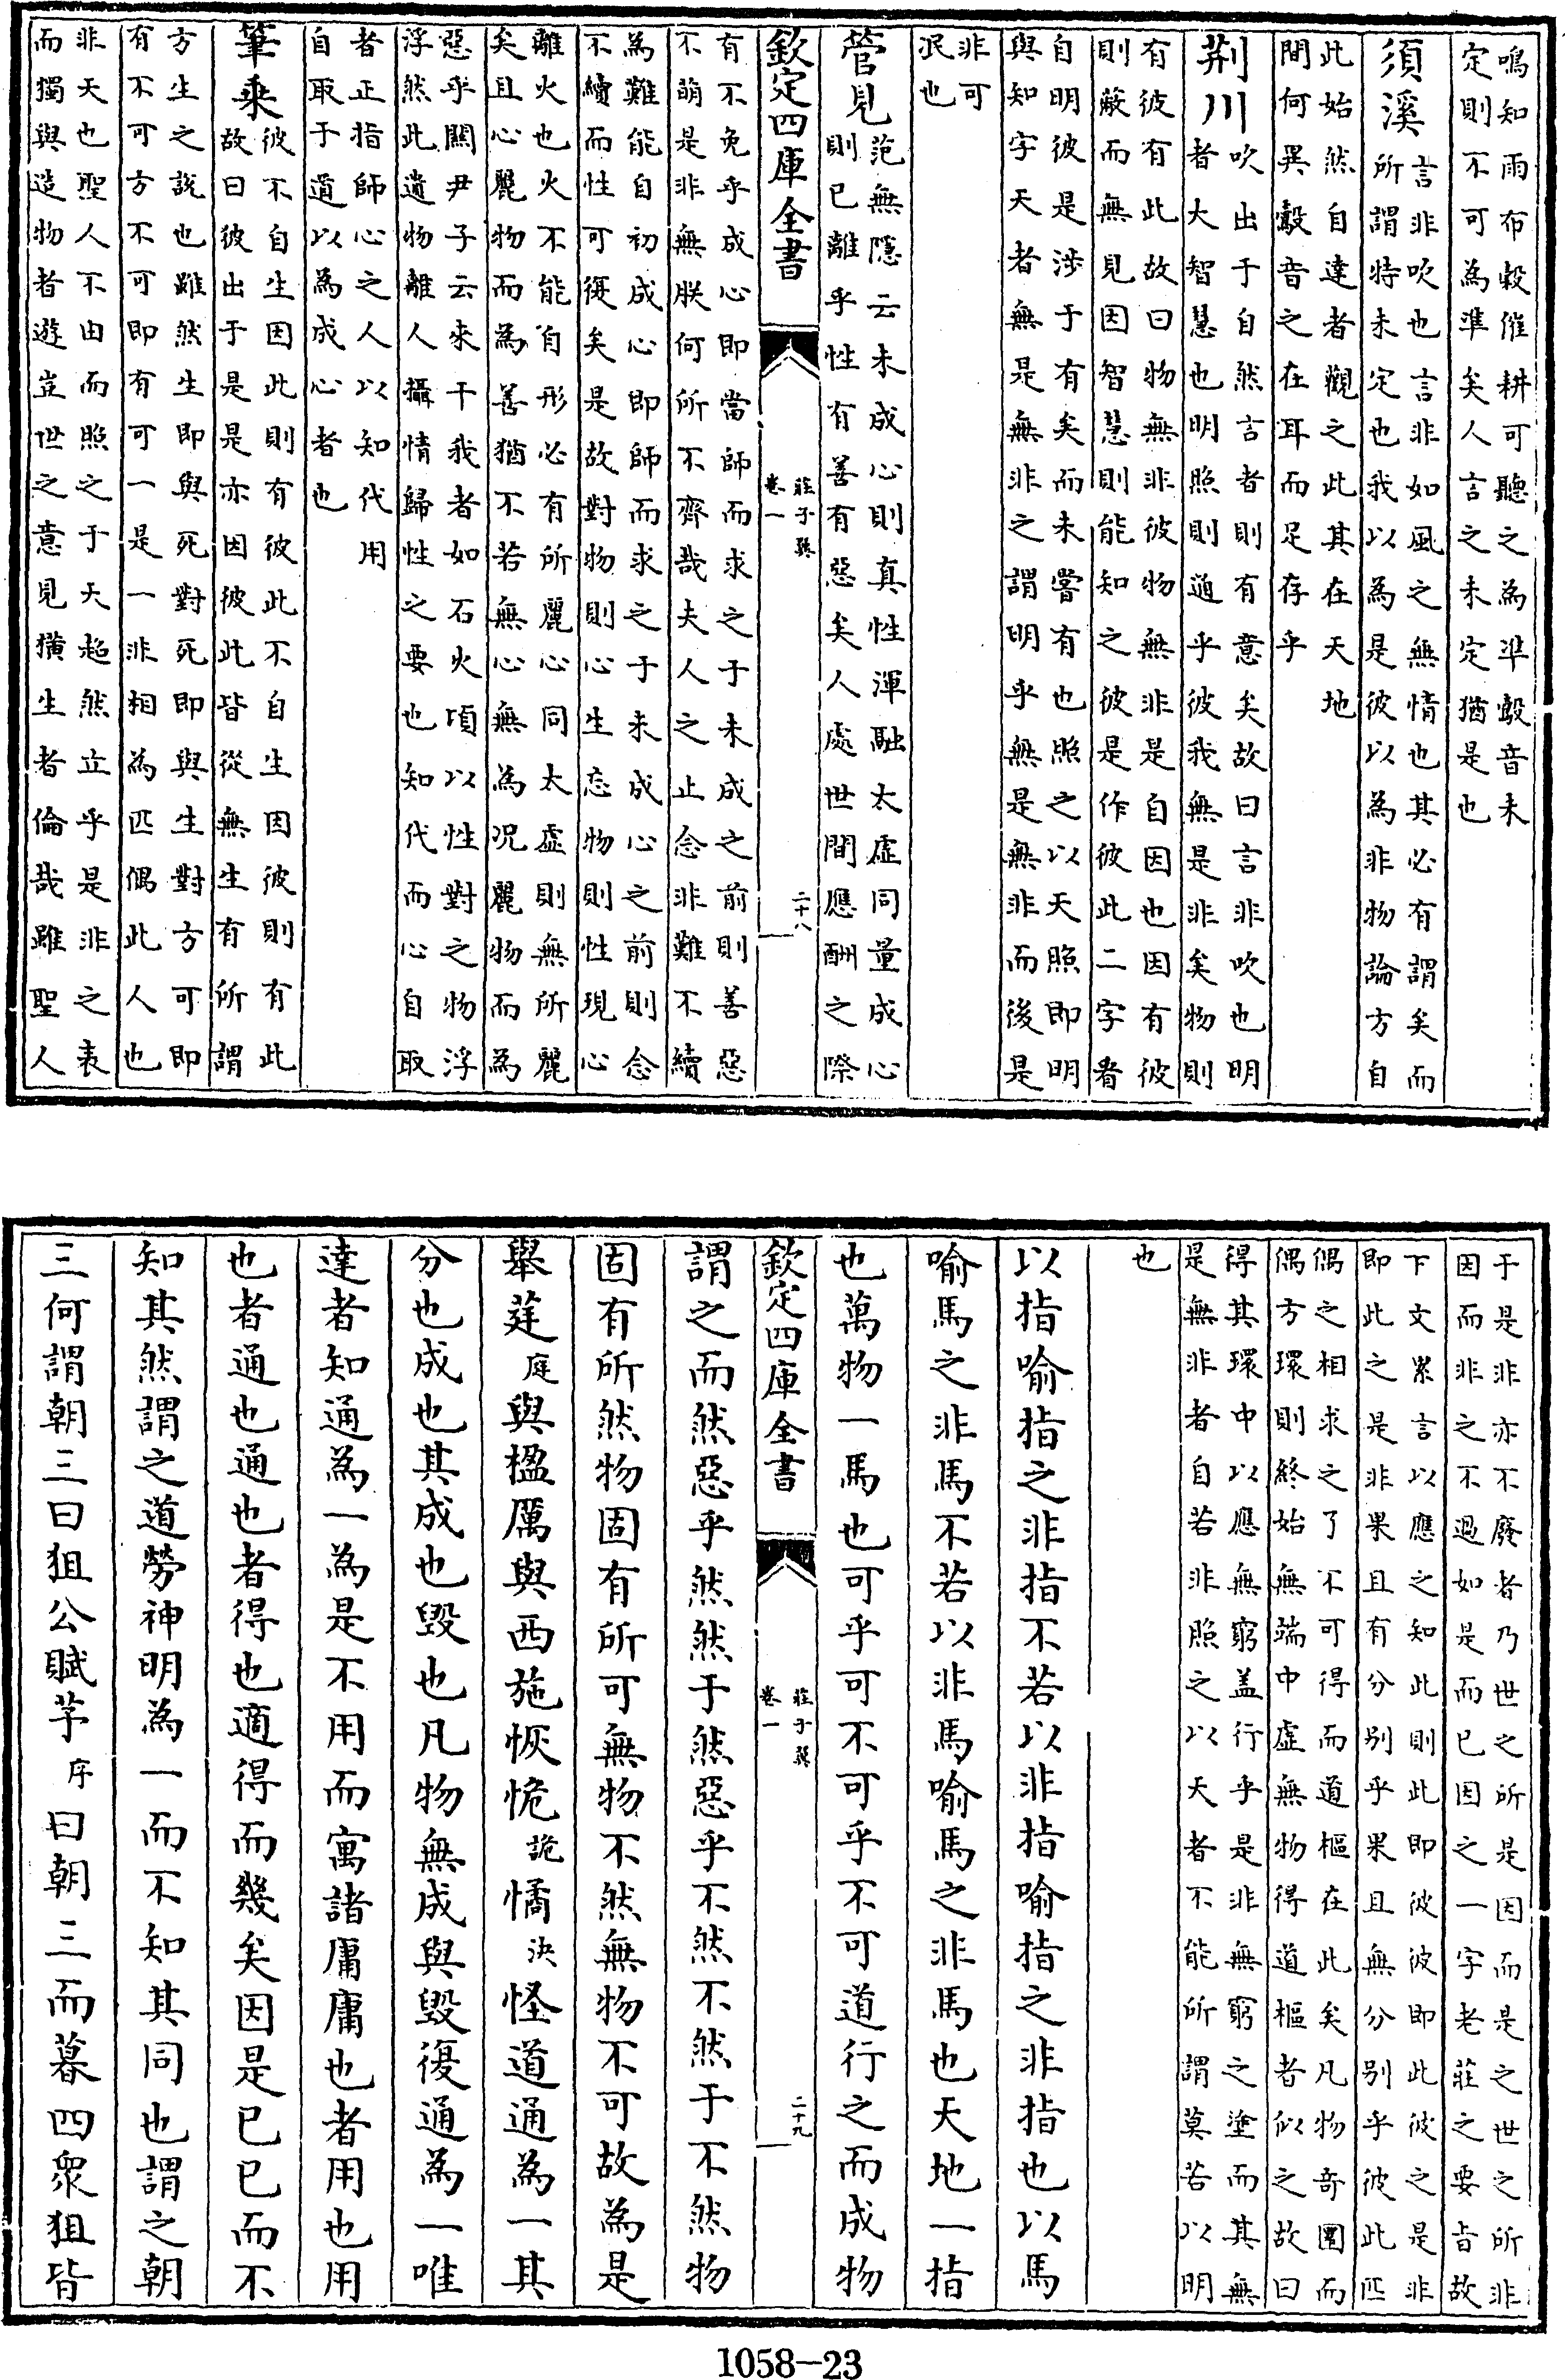 鳴知雨布穀催耕可聽之為準鷇音未
定則不可為準矣人言之未定猶是也
須溪言非吹也言非如風之無情也其必有謂矣而
所謂特未定也我以為是彼以為非物論方自
此始然自達者觀之此其在天地
間何異鷇音之在耳而足存乎
荆川吹出于自然言者則有意矣故曰言非吹也明
者大智慧也明照則通乎彼我無是非矣物則
有彼有此故曰物無非彼物無非是自因也因有彼
則蔽而無見因智慧則能知之彼是作彼此二字看
自明彼是涉于有矣而未嘗有也照之以天照即明
與知字天者無是無非之謂明乎無是無非而後是
非可
泯也
管見范無隱云未成心則真性渾融太虛同量成心
則已離乎性有善有惡矣人處世間應酬之際
欽定四庫全書
莊子翼
卷一
二十八
有不免乎成心即當師而求之于未成之前則善惡
不萌是非無朕何所不齊哉夫人之止念非難不續
為難能自初成心即師而求之于未成心之前則念
不續而性可復矣是故對物則心生忘物則性現心
離火也火不能自形必有所麗心同太虛則無所麗
矣且心麗物而為善猶不若無心無為况麗物而為
惡乎關尹子云來干我者如石火頃以性對之物浮
浮然此遺物離人攝情歸性之要也知代而心自取
者正指師心之人以知代用
自取于道以為成心者也
筆乘彼不自生因此則有彼此不自生因彼則有此
故曰彼出于是是亦因彼此皆從無生有所謂
方生之說也雖然生即與死對死即與生對方可即
有不可方不可即有可一是一非相為匹偶此人也
非天也聖人不由而照之于天超然立乎是非之表
而獨與造物者遊豈世之意見獚生者倫哉雖聖人
于是非亦不廢者乃世之所是因而是之世之所非
因而非之不過如是而已因之一字老莊之要旨故
下文累言以應之知此則此即彼彼即此彼之是非
即此之是非果且有分别乎果且無分别乎彼此匹
偶之相求之了不可得而道樞在此矣凡物奇圍而
偶方環則終始無端中虛無物得道樞者似之故曰
得其環中以應無窮盖行乎是非無窮之塗而其無
是無非者自若非照之以天者不能所謂莫若以明
也
以指喻指之非指不若以非指喻指之非指也以馬
喻馬之非馬不若以非馬喻馬之非馬也天地一指
也萬物一馬也可乎可不可乎不可道行之而成物
欽定四庫全書
莊子翼
卷一
二十九
謂之而然惡乎然然于然惡乎不然不然于不然物
固有所然物固有所可無物不然無物不可故為是
舉莛庭與楹厲與西施恢恑詭憰決怪道通為一其
分也成也其成也毁也凡物無成與毁復通為一唯
達者知通為一為是不用而寓諸庸庸也者用也用
也者通也通也者得也適得而幾矣因是已已而不
知其然謂之道勞神明為一而不知其同也謂之朝
三何謂朝三曰狙公賦芧序曰朝三而暮四衆狙皆
1058-23